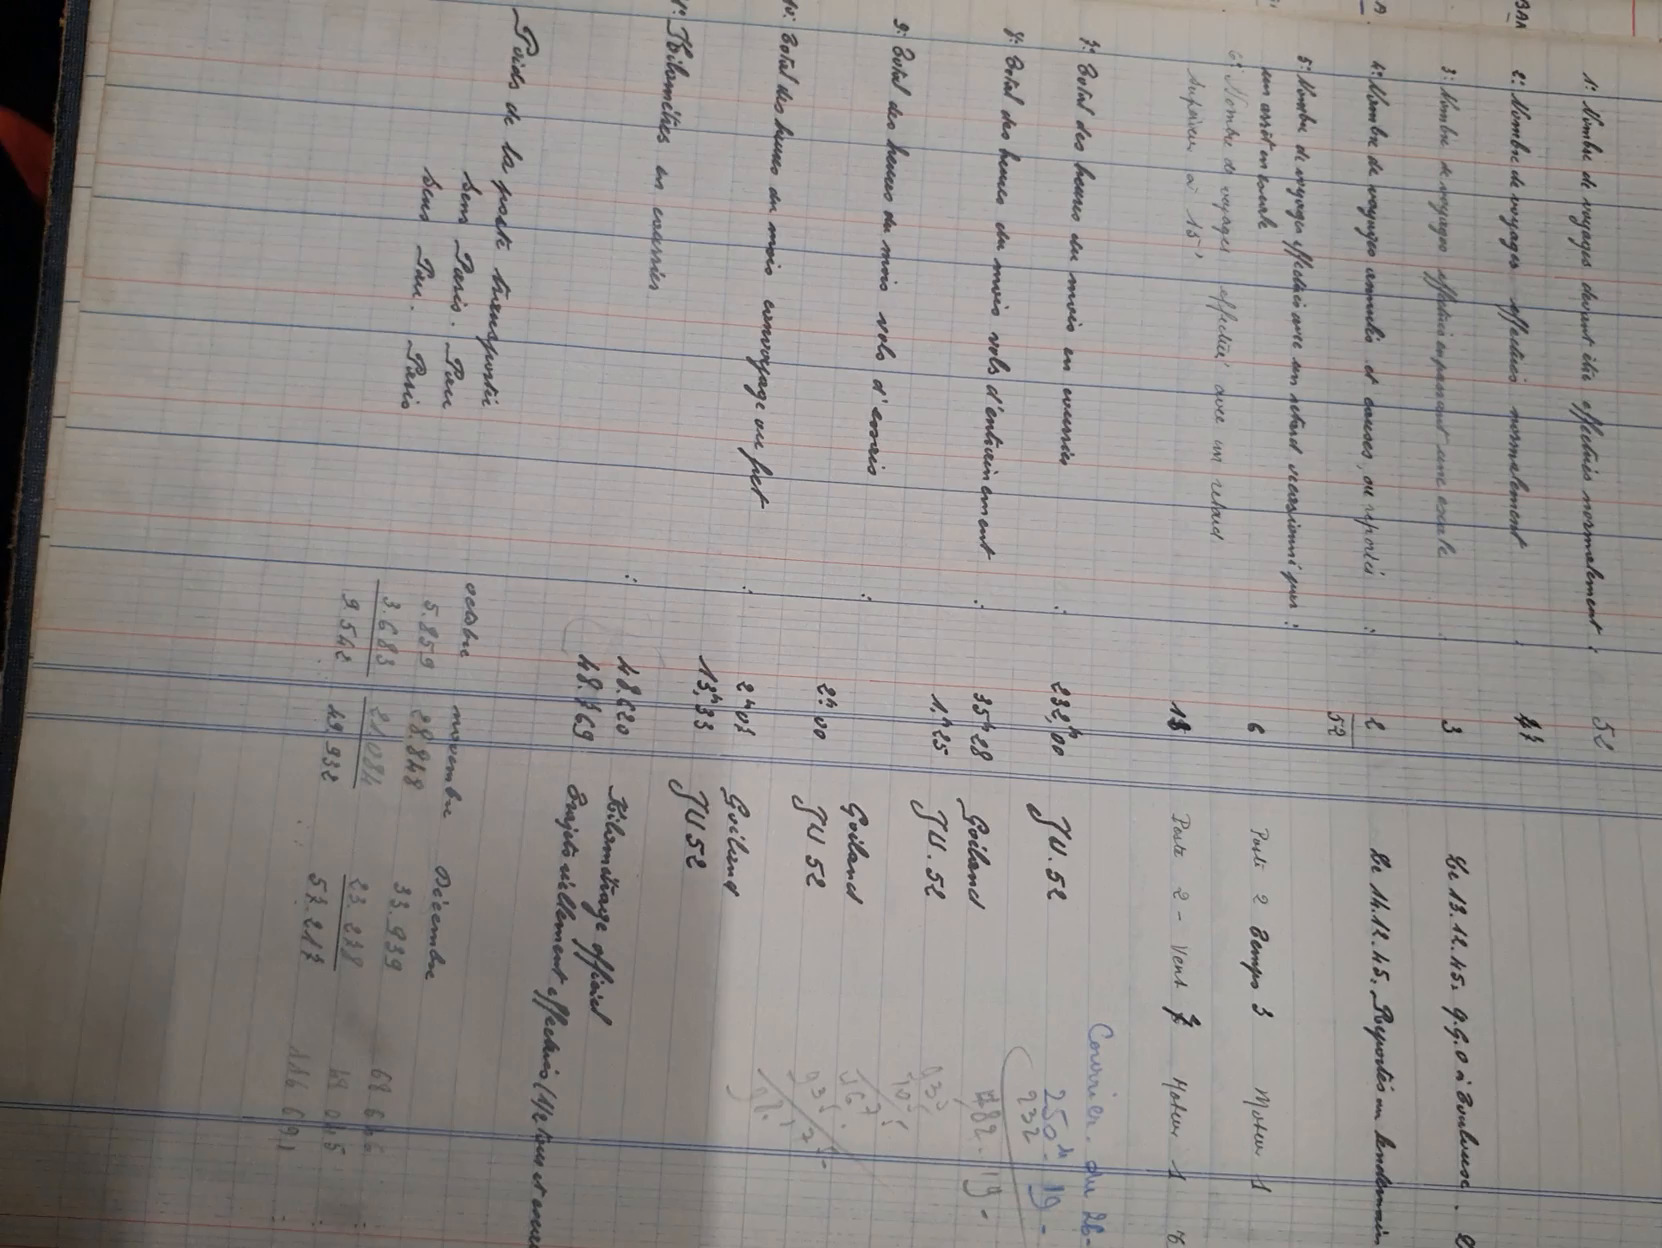 1° Nombre de voyages devant être effectués normalement : 52
2° Nombre de voyages effectués normalement : 47
3° Nombre de voyages effectués en prenant une escale : 3 Le 13.12.45. q.g.o à Toulouse.
4° Nombre de voyages annulés et causes, ou reportés : 2 Le 14.12.45. Reportés au lendemain
52
5° Nombre de voyage effectués avec un retard occasionné par : 6 Poste 2 Temps 3 Moteur 1
un arrêt en escale
6° Nombre de voyages effectués avec un retard
supérieur à 15' 18 Poste 2 - Vent 7 Moteur 1
7° Total des heures du mois en courrier : 232h,00 JU.52
Courrier. du 26-
250h 19 -
232
8° Total des heures du mois vols d'entrainement : 35h28 Goëland
1h25 JU.52
9° Total des heures du mois vols d'essais : Goëland
2h00 JU 52
10° Total des heures du mois convoyage ou fret : 2h03 Goëland
13h,33 JU 52
Kilomètres en courrier : 48.620 Kilométrage officiel
48.869 Trajets réellement effectués (1/2 tour et
Poids de la poste transportée
octobre novembre Décembre
Sens Paris. Pau 5.859 28.848 33.939
Sens Pau. Paris 3.683 21.084 23.278
9.542 49.932 57.217